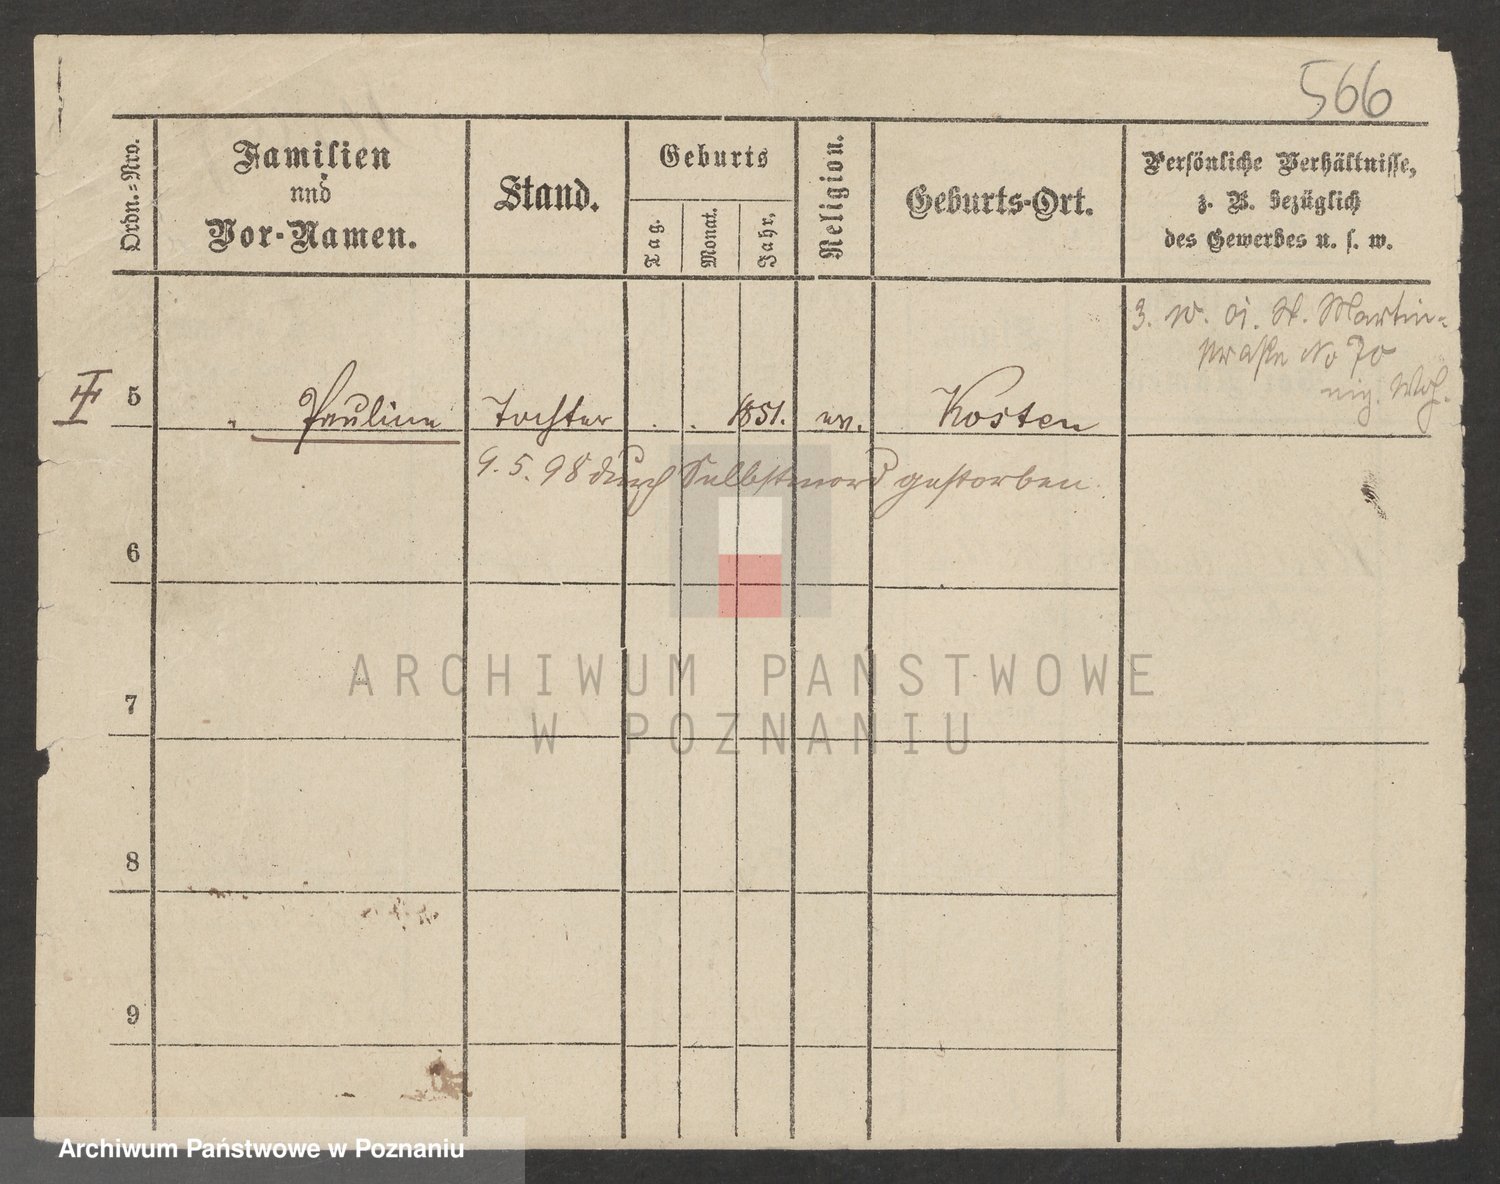 566
Ordn.=Nro.
Familien
und
Vor-Namen.
Stand.
Geburts
Tag.
Monat.
Jahr.
Religion.
Geburts-Ort.
Persönliche Verhältnisse,
z. B. bezüglich
des Gewerbes u. s. w.
3. W. St. Martin-
straße No 70
II 5 " Pauline Tochter . . 1851. ev. Kosten
9. 5. 98 durch Selbstmord gestorben.
6
7
8
9
ARCHIWUM PAŃSTWOWE
W POZNANIU
Archiwum Państwowe w Poznaniu